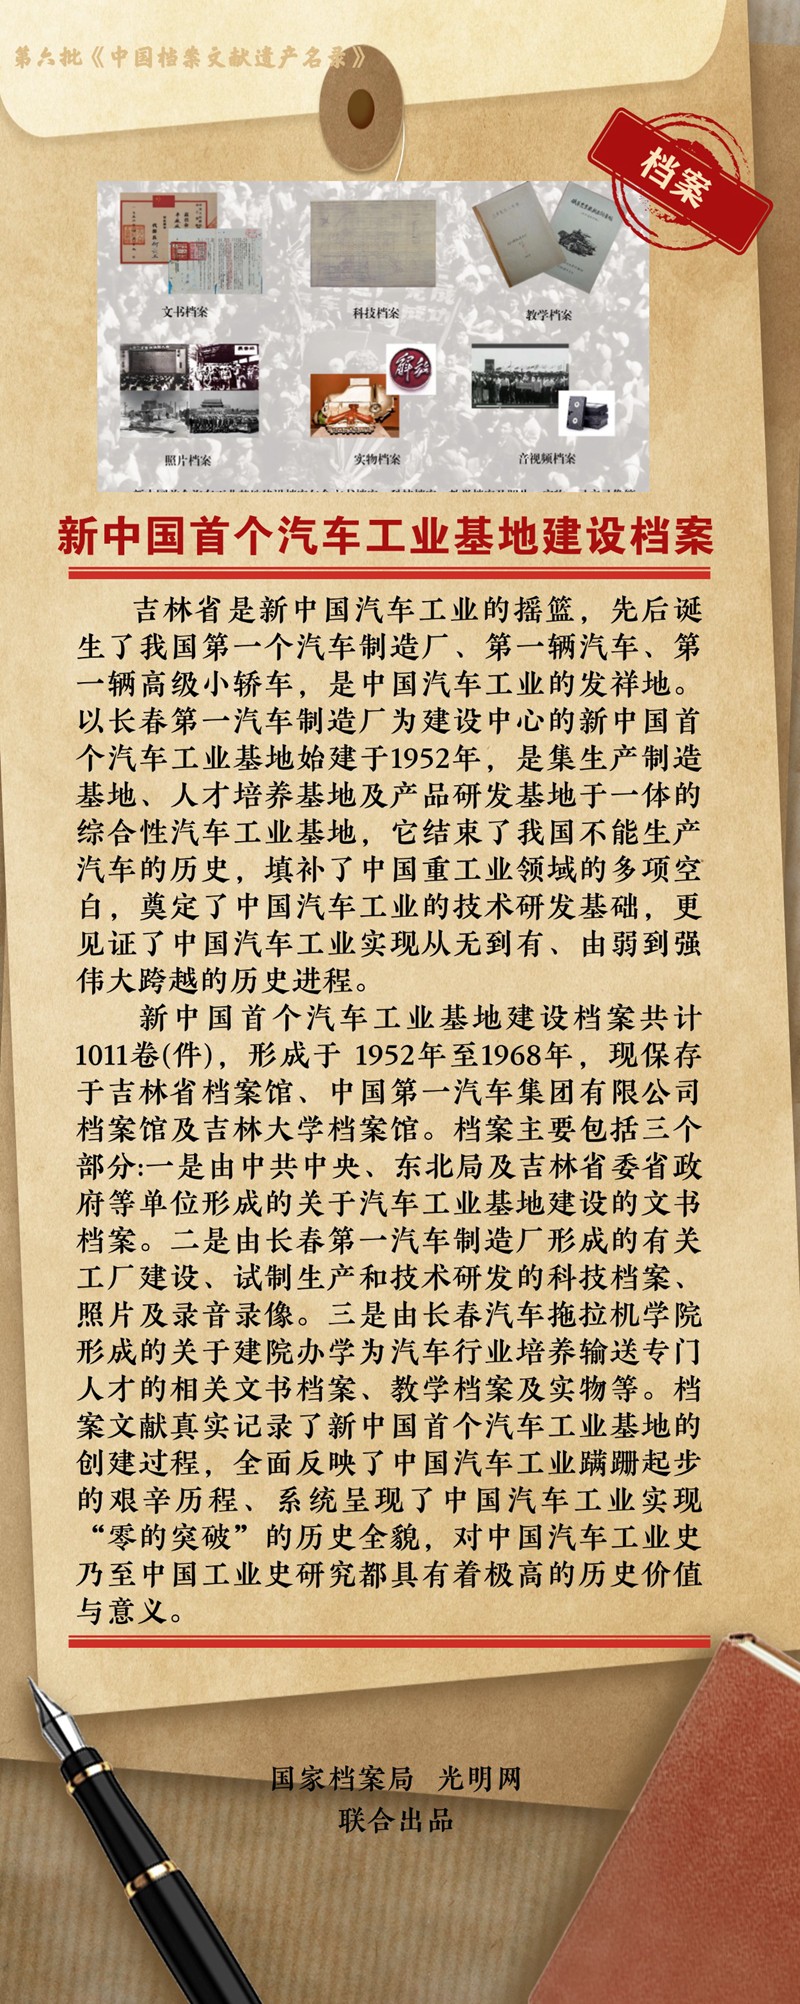 第六批《中国档案文献遗产名录》
档案
文书档案
科技档案
教学档案
解放
照片档案
实物档案
音视频档案
新中国首个汽车工业基地建设档案
吉林省是新中国汽车工业的摇篮，先后诞
生了我国第一个汽车制造厂、第一辆汽车、第
一辆高级小轿车，是中国汽车工业的发祥地。
以长春第一汽车制造厂为建设中心的新中国首
个汽车工业基地始建于1952年，是集生产制造
基地、人才培养基地及产品研发基地于一体的
综合性汽车工业基地，它结束了我国不能生产
汽车的历史，填补了中国重工业领域的多项空
白，奠定了中国汽车工业的技术研发基础，更
见证了中国汽车工业实现从无到有、由弱到强
伟大跨越的历史进程。
新中国首个汽车工业基地建设档案共计
1011卷(件)，形成于 1952年至1968年，现保存
于吉林省档案馆、中国第一汽车集团有限公司
档案馆及吉林大学档案馆。档案主要包括三个
部分:一是由中共中央、东北局及吉林省委省政
府等单位形成的关于汽车工业基地建设的文书
档案。二是由长春第一汽车制造厂形成的有关
工厂建设、试制生产和技术研发的科技档案、
照片及录音录像。三是由长春汽车拖拉机学院
形成的关于建院办学为汽车行业培养输送专门
人才的相关文书档案、教学档案及实物等。档
案文献真实记录了新中国首个汽车工业基地的
创建过程，全面反映了中国汽车工业蹒跚起步
的艰辛历程、系统呈现了中国汽车工业实现
“零的突破”的历史全貌，对中国汽车工业史
乃至中国工业史研究都具有着极高的历史价值
与意义。
国家档案局 光明网
联合出品